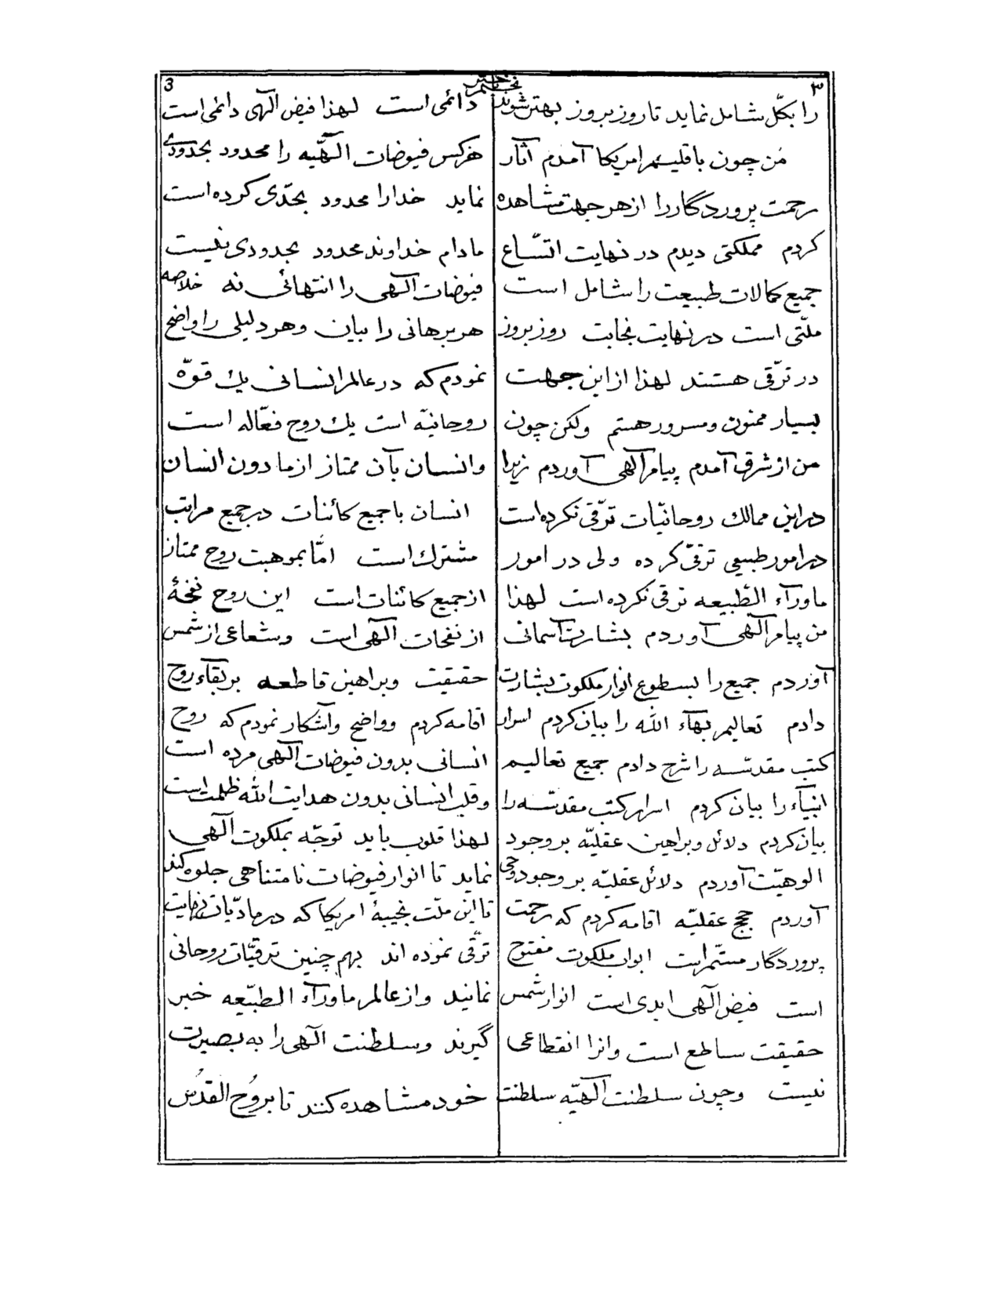 ۳
نجم باختر
3
را بکلّ شامل نماید تا روز بروز بهتر شوند
من چون باقلیم امریکا آمدم آثار
رحمت پروردگار را از هر جهت مشاهده
کردم مملکتی دیدم در نهایت اتّساع
جمیع کمالات طبیعت را شامل است
ملّتی است در نهایت نجابت روز بروز
در ترّقی هستند لهذا از این جهت
بسیار ممنون و مسرور هستم ولکن چون
من از شرق آمدم پیام الٓهی آوردم زیرا
در این ممالک روحانیّات ترقّی نکرده است
در امور طبیعی ترقّی کرده ولی در امور
ماورآء الطّبیعه ترقی نکرده است لهذا
من پیام الٓهی آوردم بشارت آسمانی
آوردم جمیع را بسطوع انوار ملکوت بشارت
دادم تعالیم بهآء الله را بیان کردم اسرار
کتب مقدّسه را شرح دادم جمیع تعالیم
انبیآء را بیان کردم اسرار کتب مقدّسه را
بیان کردم دلائل و براهین عقلیّه بر وجود
الوهیّت آوردم دلائل عقلیّه بر وجود وحی
آوردم حجج عقلیّه اقامه کردم که رحمت
پروردگار مستمر است ابواب ملکوت مفتوح
است فیض الٓهی ابدی است انوار شمس
حقیقت ساطع است وانرا انقطاعی
نیست وچون سلطنت الٓهیّه سلطنت
دائمی است لهذا فیض الٓهی دائمی است
هر کس فیوضات الٓهیّه را محدود بحدودی
نماید خدا را محدود بحدّی کرده است
مادام خداوند محدود بحدودی نیست
فیوضات الٓهی را انتهائی نه خلاصه
هر برهانی را بیان وهر دلیلی را واضح
نمودم که در عالم انسانی یک قوّه
روحانیّه است یک روح فعّاله است
وانسان بآن ممتاز از مادون انسان
انسان با جمیع کائنات در جمیع مراتب
مشترک است امّا بموهبت روح ممتاز
از جمیع کائنات است این روح نفخهٔ
از نفحات الٓهی است وشعاعی از شمس
حقیقت وبراهین قاطعه بر بقآء روح
اقامه کردم وواضح وآشکار نمودم که روح
انسانی بدون فیوضات الٓهی مرده است
وقلب انسانی بدون هدایت الله ظلمت است
لهذا قلوب باید توجّه بملکوت الٓهی
نماید تا انوار فیوضات نامتناهی جلوه کند
تا این ملّت نجیبهٔ امریکا که در مادیّات نهایت
ترقّی نموده اند بهم چنین ترقیّات روحانی
نمایند واز عالم ماورآء الطبیّعه خبر
گیرند وسلطنت الٓهی را به بصیرت
خود مشاهده کنند تا بروح القدس